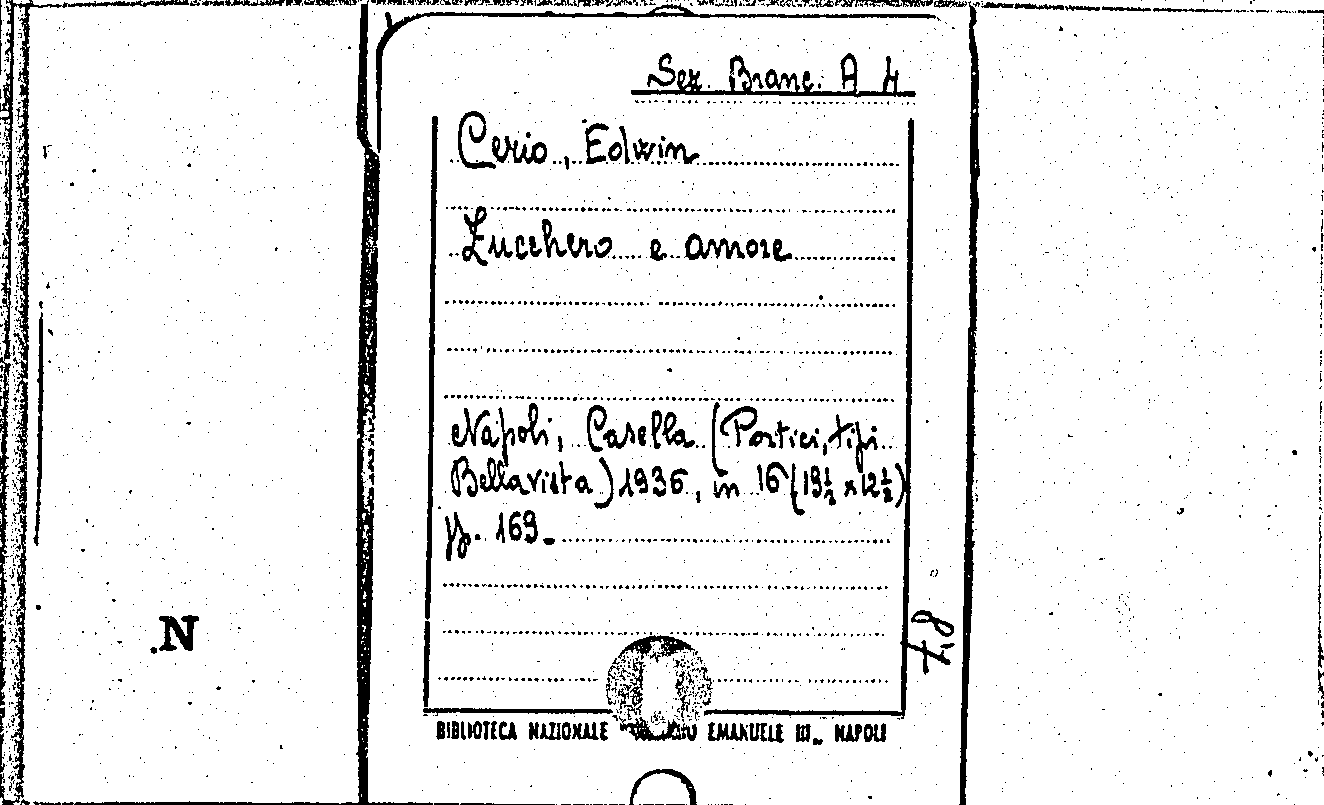 Sez. Branc. A 4
Cerio, Edwin
Zucchero e amore
Napoli, Casella (Portici, tipi
Bellavista) 1936, in 16 (19½ x 12½)
pp. 169.
7,8
.N
BIBLIOTECA NAZIONALE EMANUELE III„ NAPOLI